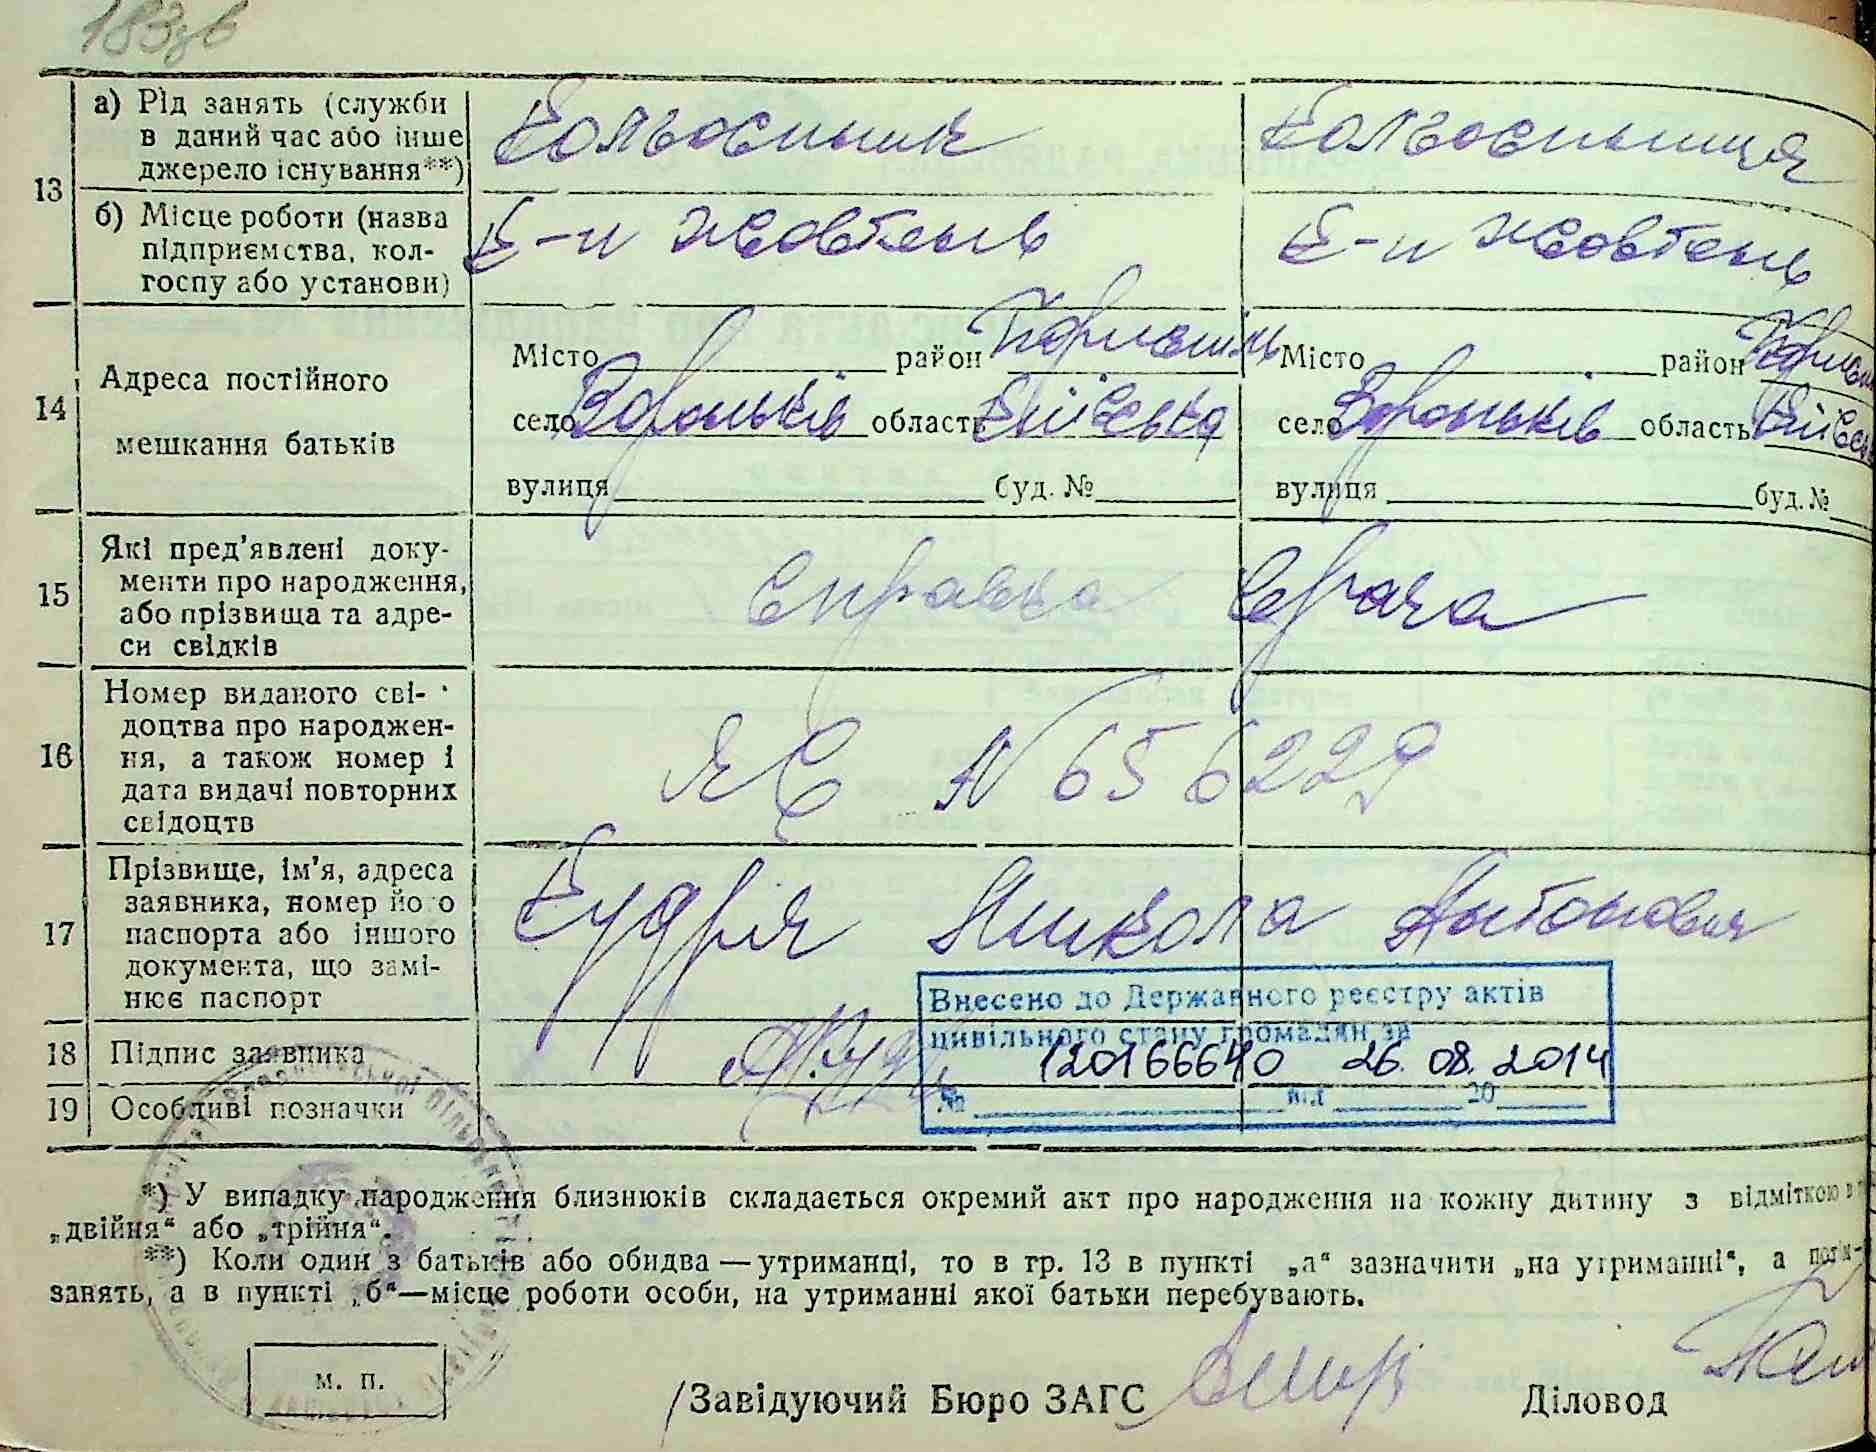 183зв
13 а) Рід занять (служби в даний час або інше джерело існування**) Колгоспник Колгоспниця
б) Місце роботи (назва підприємства, колгоспу або установи) К-п Жовтень К-п Жовтень
14 Адреса постійного мешкання батьків
Місто район Бориспіль Місто район
село Вороньків область Київська село Вороньків область Київська
вулиця буд. № вулиця буд. №
15 Які пред'явлені документи про народження, або прізвища та адреси свідків справка врача
16 Номер виданого свідоцтва про народження, а також номер і дата видачі повторних свідоцтв ЯЄ № 656229
17 Прізвище, ім'я, адреса заявника, номер його паспорта або іншого документа, що замінює паспорт Кудря Микола Антонович
Внесено до Державного реєстру актів
цивільного стану громадян за
№ 120166640 від 26.08.2014
18 Підпис заявника
19 Особливі позначки
*) У випадку народження близнюків складається окремий акт про народження на кожну дитину з відміткою
„двійня“ або „трійня“.
**) Коли один з батьків або обидва — утриманці, то в гр. 13 в пункті „а“ зазначити „на утриманні“, а
занять, а в пункті „б“—місце роботи особи, на утриманні якої батьки перебувають.
м. п.
Завідуючий Бюро ЗАГС Діловод